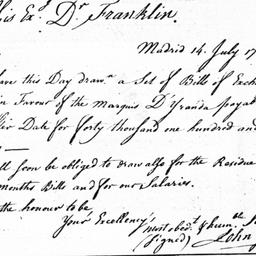 His Exy. Dr. Franklin.
Madrid 14. July 17
have this Day drawn a Set of Bills of Exch
in Favour of the Marquis D'Yranda payab
after Date for forty thousand one hundred and
ll soon be obliged to draw also for the Residue
months Bills and for our Salaries.
the honour to be
Your Excellency's
most obedt. & humble S
(Signed) John